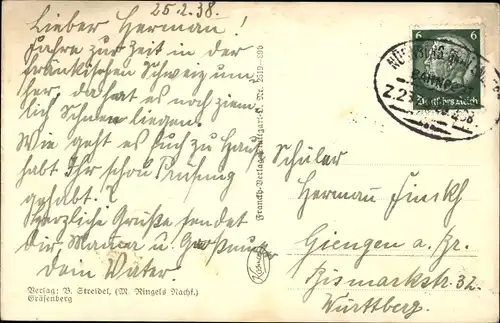 25.2.38.
Lieber Herman!
Fahre zur Zeit in der
fränkischen Schweiz um
her, da hat es noch ziem
lich Schnee liegen.
Wie geht es Euch zu Haus
habt Ihr schon Prüfung
gehabt.?
Herzliche Grüße sendet
dir Mamma u. Großmutter
dein Vater.
Verlag: B. Streidel, (M. Ringels Nachf.)
Gräfenberg
Franckh-Verlag, Stuttgart-O. Nr.
6 6
Deutsches Reich
BAHNPOST
Schüler
Hermann Finckh
Giengen a. Br.
Bismarckstr. 32.
Württberg.